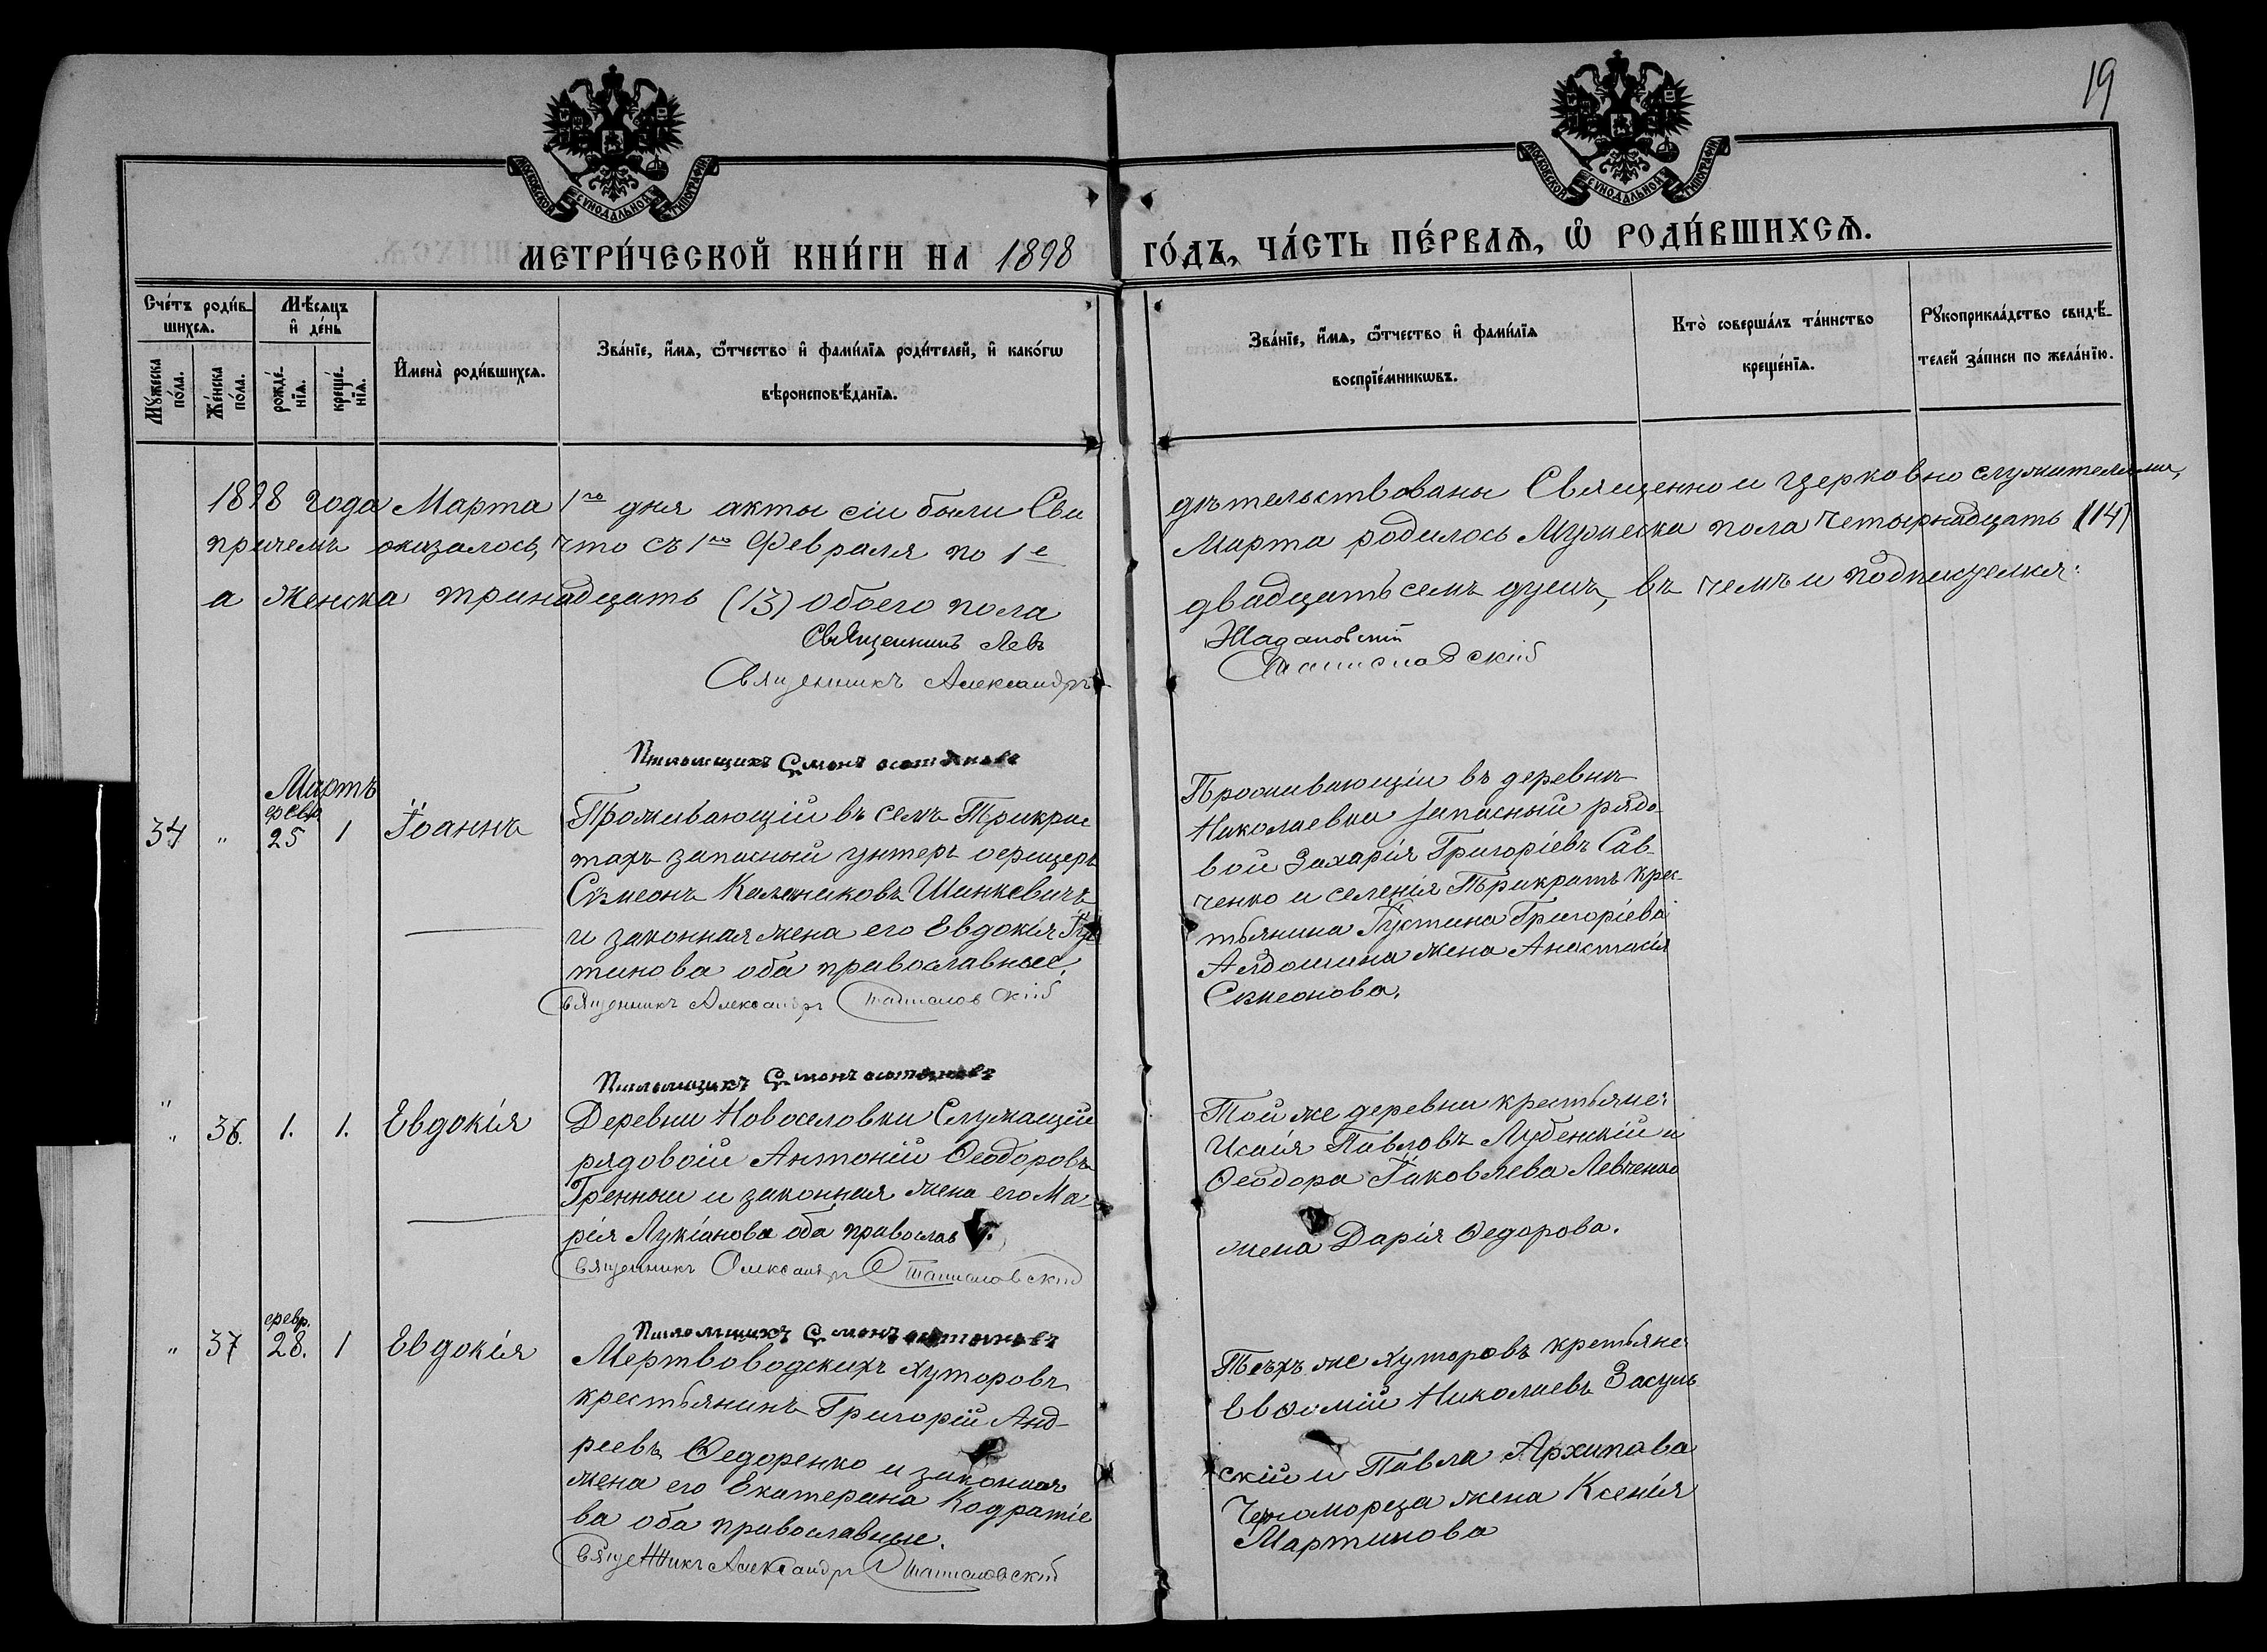 19
МОСКОВСКОЙ СѴНОДАЛЬНОЙ ТИПОГРАФІИ
МОСКОВСКОЙ СѴНОДАЛЬНОЙ ТИПОГРАФІИ
МЕТРИ́ЧЕСКОЙ КНИ́ГИ НА 1898 ГО́ДЪ, ЧА́СТЬ ПЕ́РВАѦ, Ѡ РОДИ́ВШИХСѦ.
Сче́тъ роди́в-
шихсѧ.
Мꙋ́жеска
по́ла.
Же́нска
по́ла.
Мѣ́сѧцъ
и҆ де́нь
рожде́-
нїѧ.
креще́-
нїѧ.
И҆мена̀ роди́вшихсѧ.
Зва́нїе, и҆́мѧ, ѻ҆́тчество и҆ фами́лїѧ роди́телей, и҆ како́гѡ
вѣроисповѣ́данїѧ.
Зва́нїе, и҆́мѧ, ѻ҆́тчество и҆ фами́лїѧ
воспрїе́мникѡвъ.
Кто̀ соверша́лъ та́инство
креще́нїѧ.
Рꙋкоприкла́дство свидѣ́-
телей за́писи по жела́нїю.
1898 года Марта 1го дня акты сіи были Сви
дѣтельствованы Священно и церковно служителями,
причемъ оказалось, что съ 1го Февраля по 1е
Марта родилось Мужеска пола четырнадцать (14)
а женска тринадцать (13) обоего пола
двадцать семь душъ, въ чемъ и подписуемся:
Священникъ Левъ Жадановскій
Священникъ Александръ Станиславскій
Псаломщикъ Симонъ
Мартъ
34 " февр. 25 1 Іоаннъ
Проживающій въ селѣ Трикра
тахъ запасный унтеръ офицеръ
Сѵмеонъ Калениковъ Шинкевичъ
и законная жена его Евдокія Іус
тинова оба православные.
Священникъ Александръ Станиславскій
Проживающіи въ деревнѣ
Николаевки запасный рядо-
вой Захарія Григоріевъ Сав-
ченко и селенія Трикратъ крес-
тьянина Іустина Григоріева
жена Анастасія
Сѵмеонова.
Псаломщикъ Симонъ
" 36. 1. 1. Евдокія
Деревни Новоселовки Служащій
рядовой Антоній Ѳеодоровъ
и законная жена его Ма
рія Лукіанова оба православ
Священникъ Александръ Станиславскій
Той же деревни крестьяне:
Исаія Павловъ Лубенскій и
Ѳеодора Іаковлева Левченко
жена Дарія Ѳедорова.
Псаломщикъ Симонъ
" 37 февр. 28. 1 Евдокія
Мертвоводскихъ хуторовъ
крестьянинъ Григорій Анд-
реевъ Ѳедоренко и законная
жена его Екатерина Кодратіе
ва оба православные.
Священникъ Александръ Станиславскій
Тѣхъ же хуторовъ крестьяне
Евѳимій Николаевъ Засуль
скій и Павла Архипова
Черноморца жена Ксенія
Мартинова